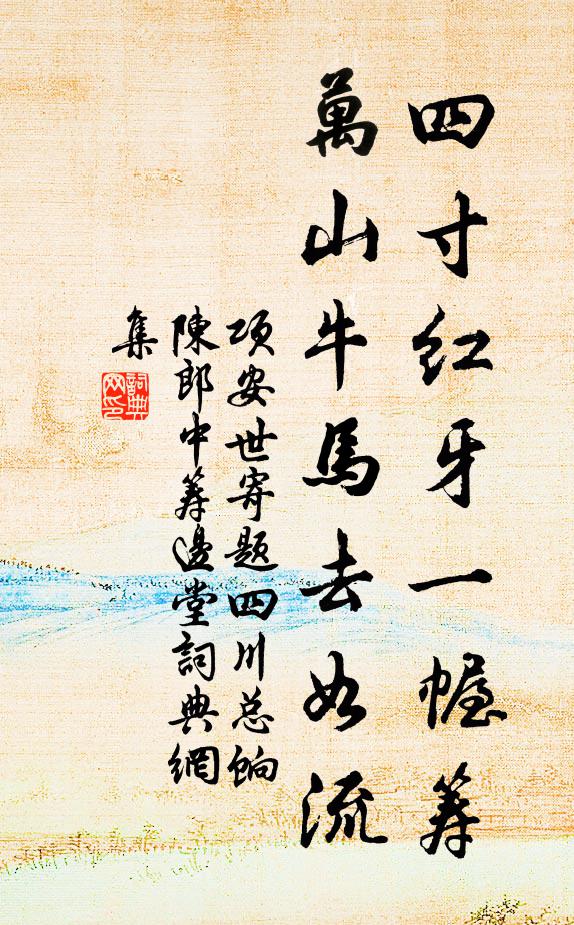 四寸红牙一幄筹
萬山牛馬去如流
项安世寄题四川总饷
陳郎中筹邊堂詞典網
集
詞典網印